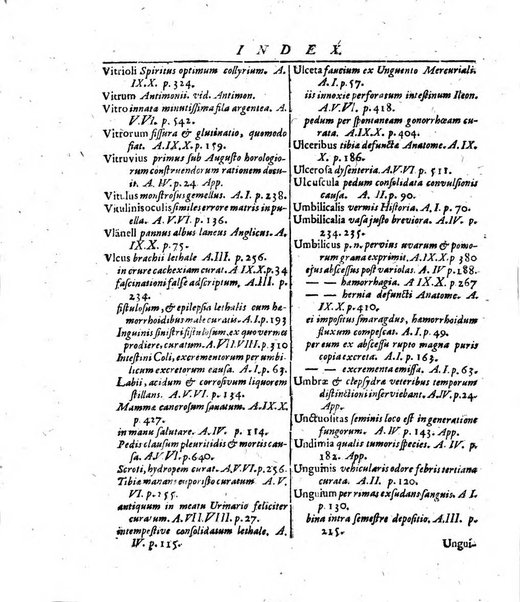 INDEX.
Vitrioli Spiritus optimum collyrium. A.
IX.X. p. 324.
Vitrum Antimonii. vid. Antimon.
Vitro innata minutissima fila argentea. A.
V.VI. p. 542.
Vitrorum fissura & glutinatio, quomodo
fiat. A.IX.X. p. 159.
Vitruvius primus sub Augusto horologio-
rum construendorum rationem docu-
it. A.IV. p. 24. App.
Vitulus monstrosus gemellus. A.I. p. 238.
Vitulini soculis similes errore matris in pu-
ella. A.V.VI. p. 136.
Vlänell pannus albus laneus Anglicus. A.
IX.X. p. 75.
Vlcus brachii lethale A.III. p. 256.
in crure cachexiam curat. A.IX.X. p.34
fascinationi false adscriptum, A.III. p.
234.
fistulosum, & epilepsia lethalis cum hæ-
morrhoidibus male curatis. A.I. p.193
Inguinis sinistri fistulosum, ex quo vermes
prodiere, curatum. A.VII.VIII. p.310
Intestini Coli, excrementorum per umbi-
licum excretorum causa. A.I. p. 63.
Labii, acidum & corrosivum liquorem
stillans. A.V.VI. p. 640.
Mammæ cancrosum sanatum. A.IX.X.
p. 427.
in manu salutare. A.IV. p. 104.
Pedis clausum pleuritidis & mortis cau-
sa. A.V.VI. p. 640.
Scroti, hydropem curat. A.V.VI. p.256.
Tibiæ manans emporisto curatum A.V.
VI. p. 155.
antiquum in metu Urinario feliciter
curatum. A.VII.VIII. p. 27.
intempestive consolidatum lethale. A.
IV. p. 115.
Ulcera faucium ex Unguento Mercuriali.
A.I. p. 57.
iis innoxie perforatum intestinum Ileon.
A.V.VI. p. 418.
pedum per spontaneam gonorrhœam cu-
rata. A.IX.X. p. 404.
Ulceribus tibiæ defuncta Anatome. A.IX
X. p. 186.
Ulcerosa dysenteria. A.V.VI. p. 511.
Ulcuscula pedum consolidata convulsionis
causa. A.II. p. 90.
Umbilicalis vermis Historia. A.I. p. 70.
Umbilicalia vasa justo breviora. A.IV. p.
234. 235.
Umbilicus p.n. pervius uvarum & pomo-
rum grana exprimit. A.IX.X. p 380
ejus abscessus post variolas. A.IV. p.188.
— — hæmorrhagia. A.IX.X p. 267
— — hernia defuncti Anatome. A.IX.
X. p. 410.
ei impositus smaragdus, hæmorrhoidum
fluxum compescat. A.I. p. 49.
per eum ex abscessu rupto magna puris
copia excreta. A.I. p. 163.
— — excrementa emissa. A.I. p. 63.
Umbræ & clepsydræ veteribus temporum
distinctioni inserviebant. A.IV. p. 24.
App.
Unctuositas seminis loco est in generatione
fungorum. A. IV p. 143. App.
Undimia qualis tumoris species. A. IV. p.
182. App.
Unguimis vehiculis odore febris tertiana
curata. A.I. p. 30.
Unguium per rimas exsudans sanguis. A.I
p. 130.
bina intra semestre depositio. A.III. p.
215.
Ungui-